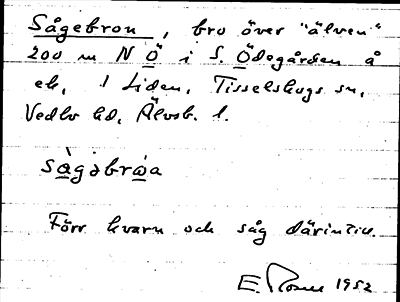 Sågebron, bro över "älven"
200 m N Ö i S. Ödegården å
ek. 1 Liden, Tisselskogs sn,
Vedbo hd, Älvsb. l.
sàgəbrὼa
Förr kvarn och såg därintill.
E. Rosell 1952